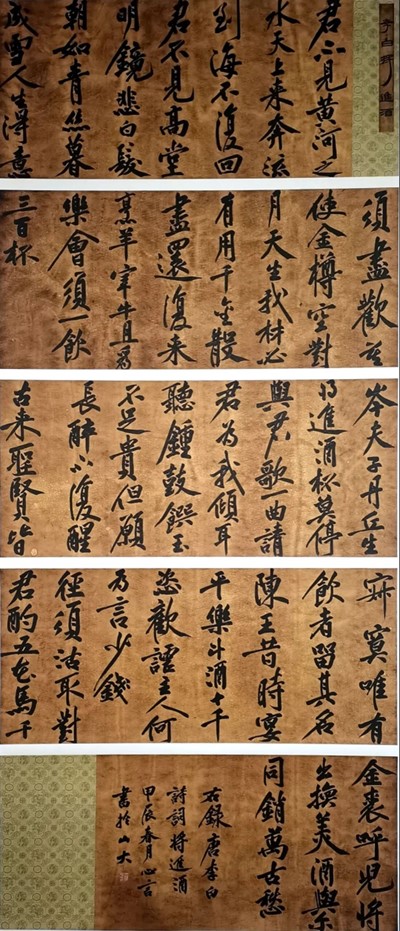 李白將進酒
君不見黃河之
水天上來奔流
到海不復回
君不見高堂
明鏡悲白髮
朝如青絲暮
成雪人生得意
須盡歡莫
使金樽空對
月天生我材必
有用千金散
盡還復來
烹羊宰牛且為
樂會須一飲
三百杯
岑夫子丹丘生
將進酒杯莫停
與君歌一曲請
君為我傾耳
聽鍾鼓饌玉
不足貴但願
長醉不復醒
古來聖賢皆
寂寞唯有
飲者留其名
陳王昔時宴
平樂斗酒十千
恣歡謔主人何
為言少錢
徑須沽取對
君酌五花馬千
金裘呼兒將
出換美酒與爾
同銷萬古愁
右錄唐李白
詩詞將進酒
甲辰春月心言
書於山大